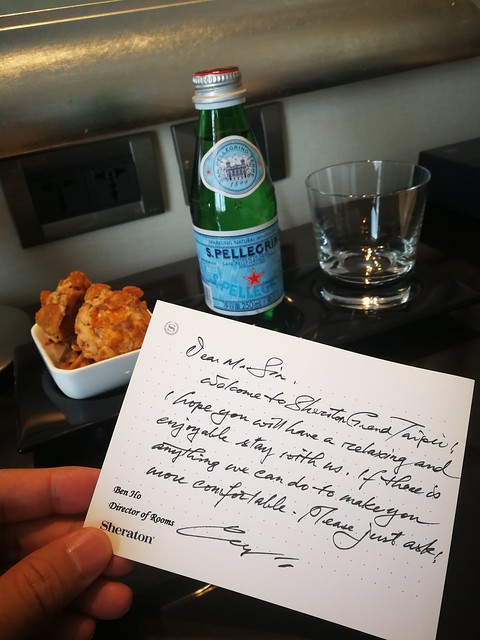 S.PELLEGRINO
1899
SPARKLING NATURAL
S.PELLEGRIN
S.PELLEG
Dear Mr Sin,
Welcome to Sheraton Grand Taipei!
I hope you will have a relaxing and
enjoyable stay with us. If there is
anything we can do to make you
more comfortable. Please just ask!
Ben Ho
Director of Rooms
Sheraton